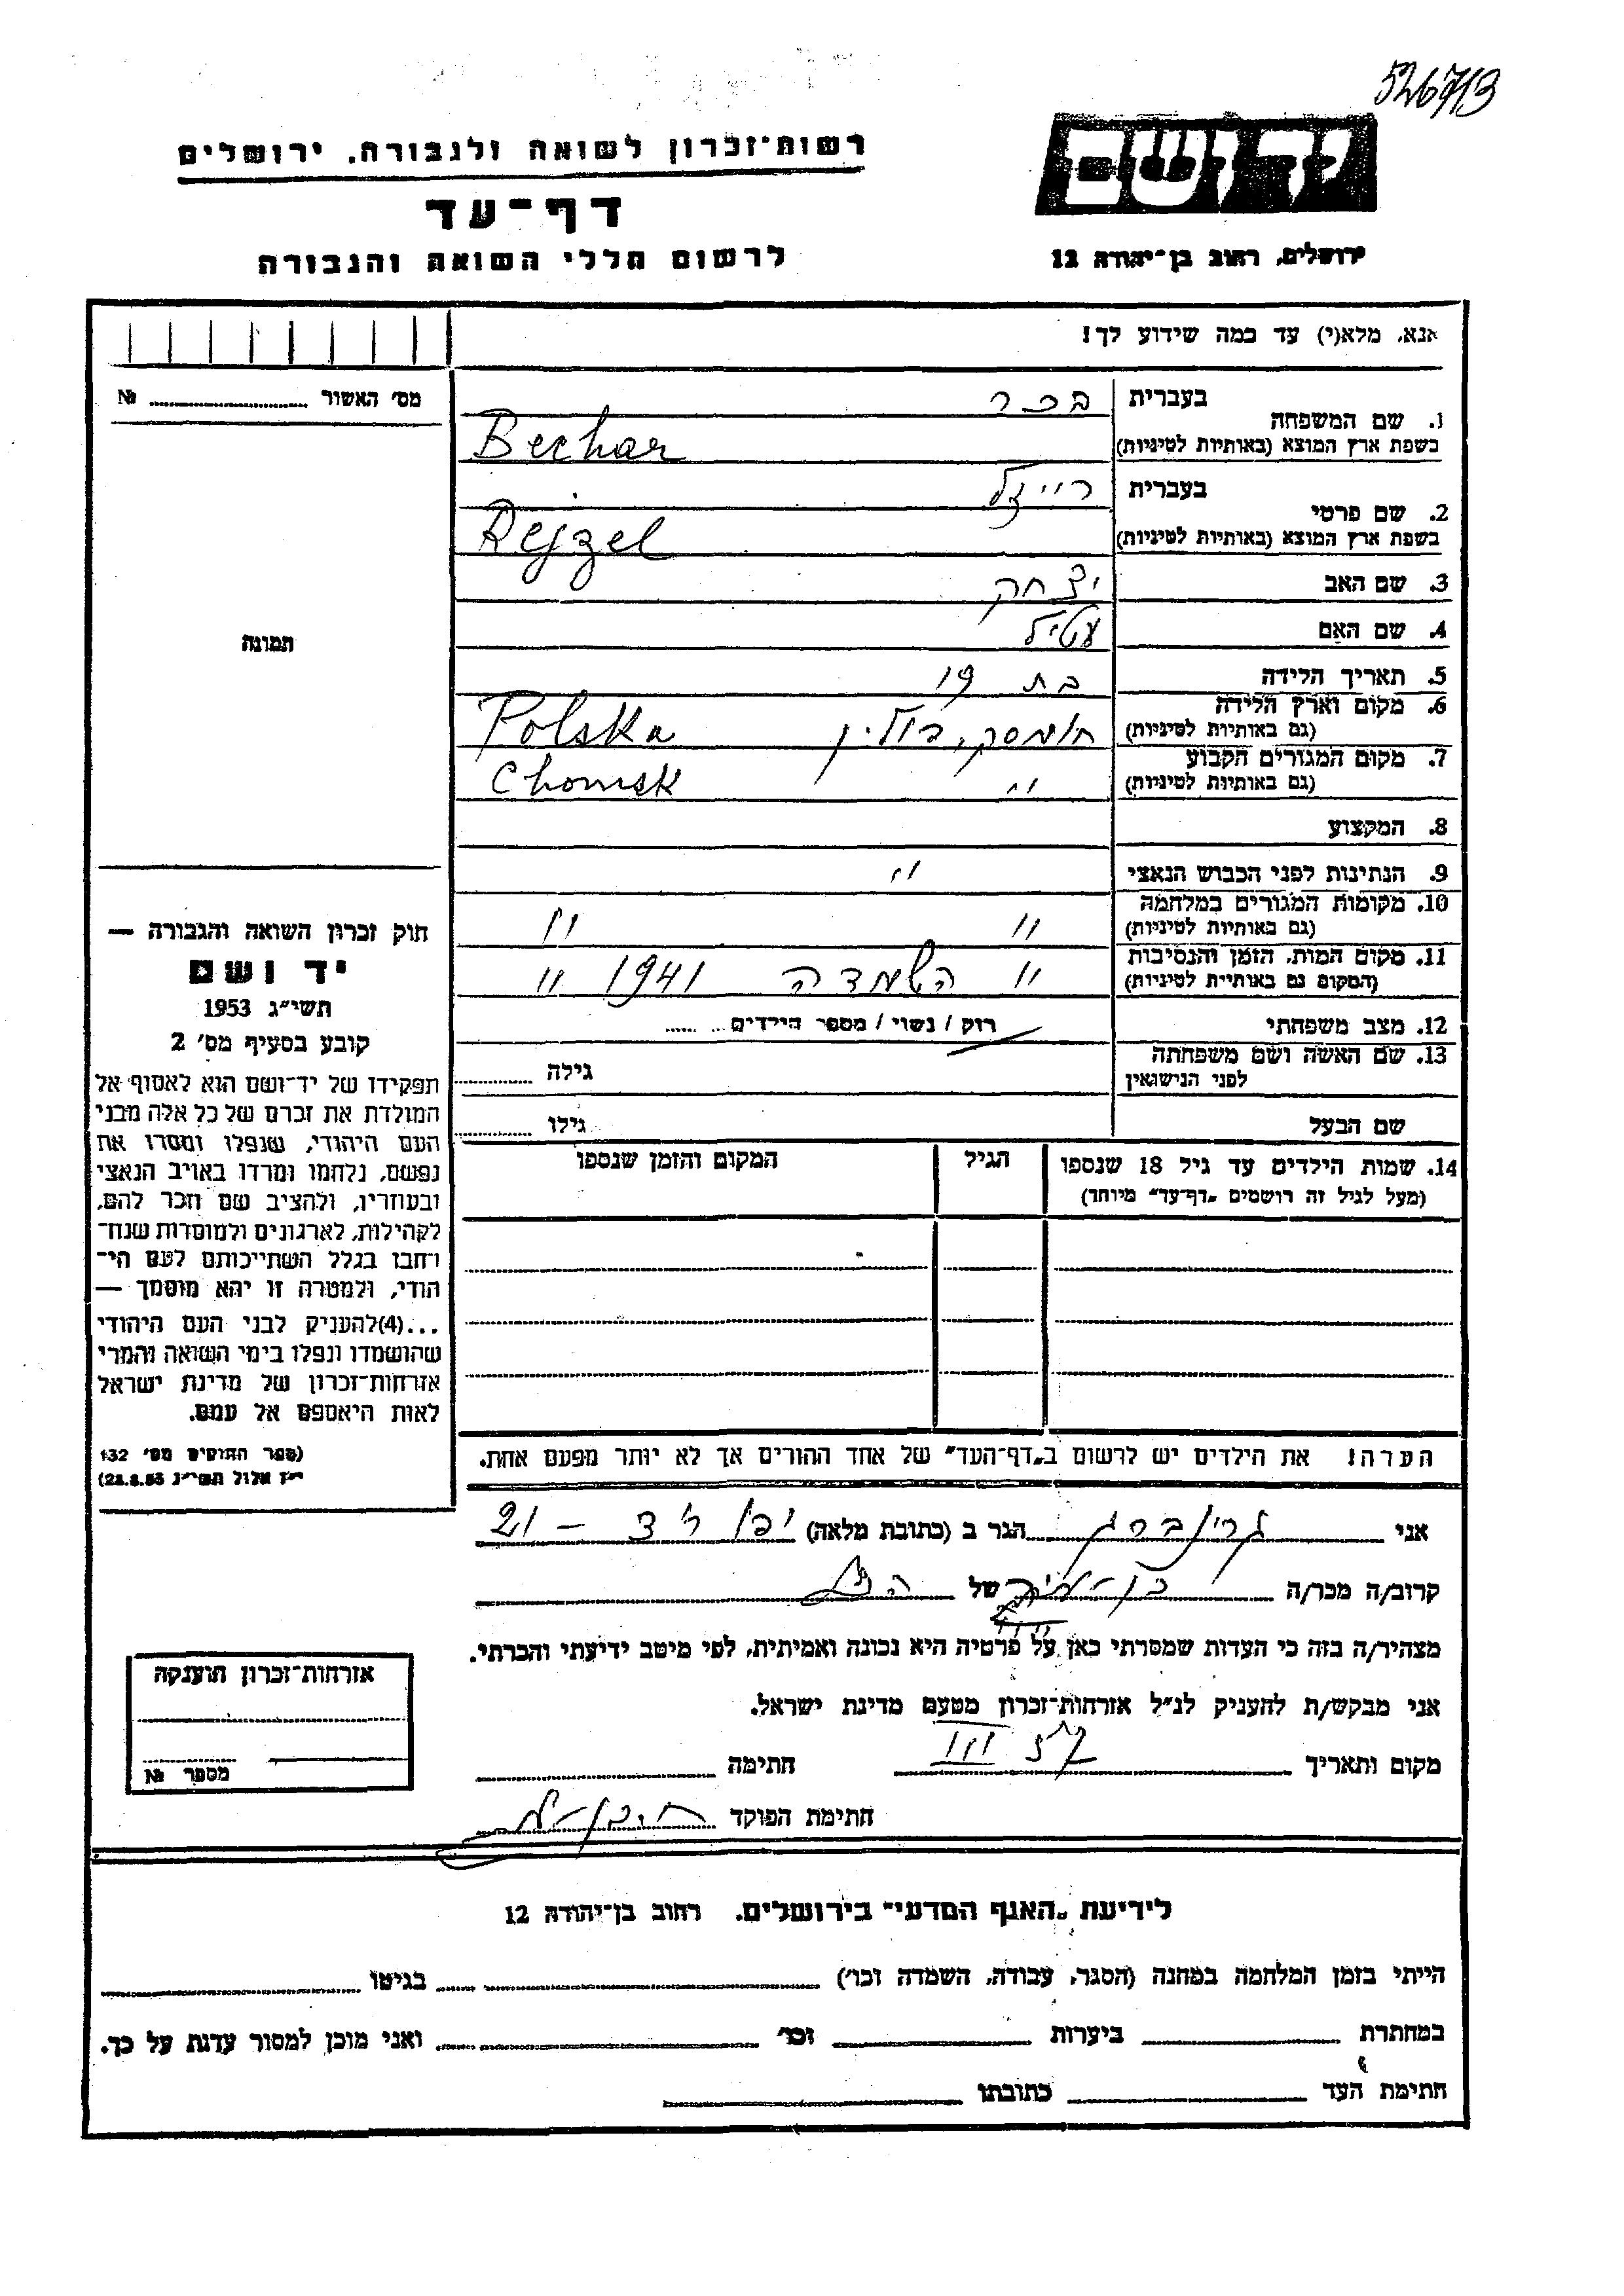 526713
יד ושם
רשות־זכרון לשואה ולגבורה, ירושלים
דף־עד
ירושלים, רחוב בן־יהודה 12
לרשום חללי השואה והגבורה
אנא, מלא(י) עד כמה שידוע לך!
מס׳ האשור № 
1. שם המשפחה
בעברית בכר
בשפת ארץ המוצא (באותיות לטיניות) Bechar
2. שם פרטי
בעברית רייזל
בשפת ארץ המוצא (באותיות לטיניות) Rejzel
3. שם האב יצחק
4. שם האם
תמונה
5. תאריך הלידה בת 19
6. מקום וארץ הלידה
(גם באותיות לטיניות) חומסק, פולין Polska
7. מקום המגורים הקבוע
(גם באותיות לטיניות) " Chomsk
8. המקצוע
9. הנתינות לפני הכבוש הנאצי "
10. מקומות המגורים במלחמה
(גם באותיות לטיניות) " "
11. מקום המות, הזמן והנסיבות
(המקום גם באותיות לטיניות) " השמדה 1941 "
12. מצב משפחתי רוק / נשוי / מספר הילדים
13. שם האשה ושם משפחתה
לפני הנישואין גילה
שם הבעל גילו
14. שמות הילדים עד גיל 18 שנספו
(מעל לגיל זה רושמים „דף־עד״ מיוחד)
הגיל
המקום והזמן שנספו
חוק זכרון השואה והגבורה —
יד ושם
תשי״ג 1953
קובע בסעיף מס׳ 2
תפקידו של יד־ושם הוא לאסוף אל
המולדת את זכרם של כל אלה מבני
העם היהודי, שנפלו ומסרו את
נפשם, נלחמו ומרדו באויב הנאצי
ובעוזריו, ולהציב שם וזכר להם,
לקהילות, לארגונים ולמוסדות שנח־
רבו בגלל השתייכותם לעם הי־
הודי, ולמטרה זו יהא מוסמך —
...(4)להעניק לבני העם היהודי
שהושמדו ונפלו בימי השואה והמרי
אזרחות־זכרון של מדינת ישראל
לאות היאספם אל עמם.
(ספר החוקים מס׳ 132
י״ז אלול תשי״ג 28.8.53)
הערה! את הילדים יש לרשום ב„דף־העד״ של אחד ההורים אך לא יותר מפעם אחת.
אני גרינברג הגר ב (כתובת מלאה) 21 –
קרוב/ה מכר/ה של
מצהיר/ה בזה כי העדות שמסרתי כאן על פרטיה היא נכונה ואמיתית, לפי מיטב ידיעתי והכרתי.
אני מבקש/ת להעניק לנ״ל אזרחות־זכרון מטעם מדינת ישראל.
מקום ותאריך III 57 חתימה
חתימת הפוקד
אזרחות־זכרון הוענקה
מספר №
לידיעת „האגף המדעי״ בירושלים, רחוב בן־יהודה 12
הייתי בזמן המלחמה במחנה (הסגר, עבודה, השמדה וכו׳) בגיטו
במחתרת ביערות וכו׳ ואני מוכן למסור עדות על כך.
חתימת העד כתובתו